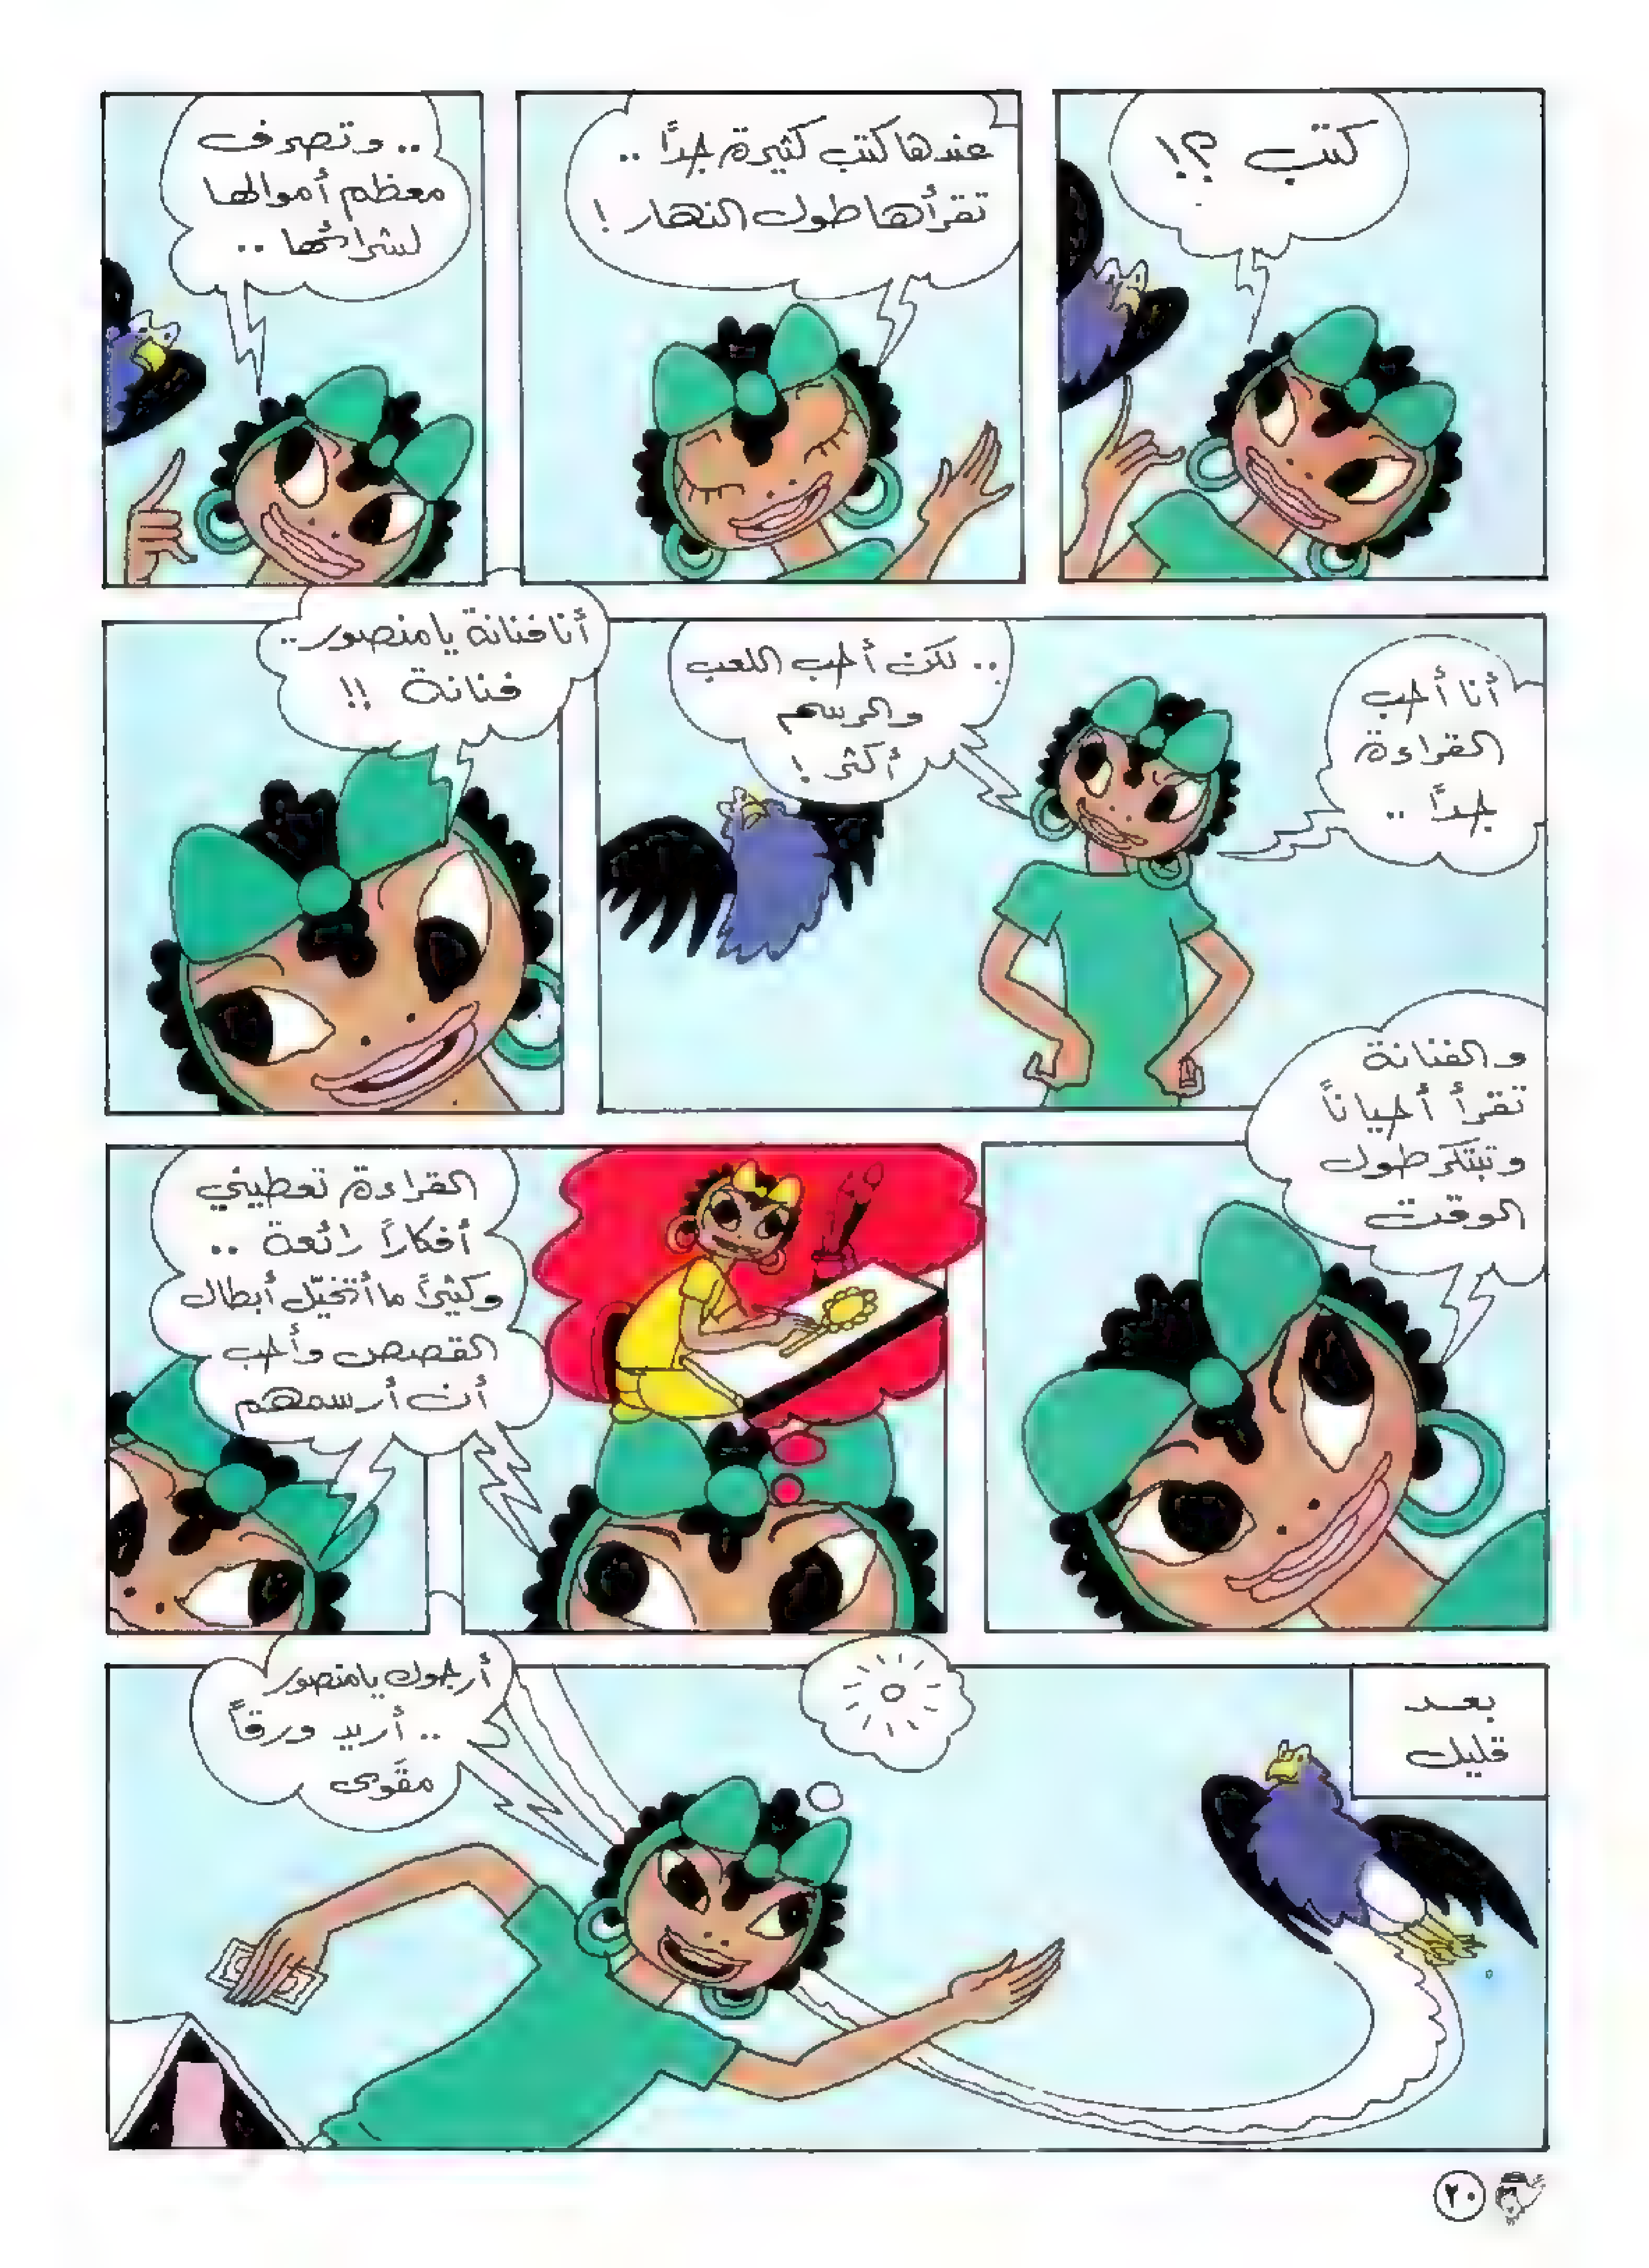 كتب ؟!
عندها كتب كثيرة جداً ..
تقرأها طول النهار !
.. وتصرف
معظم أموالها
لشرائها ..
أنا أحب
القراءة
جداً ..
.. لكن أحب اللعب
والرسم
أكثر !
أنا فنانة يا منصور ..
فنانة !!
والفنانة
تقرأ أحياناً
وتبتكر طول
الوقت
القراءة تعطيني
أفكاراً رائعة ..
وكثيراً ما أتخيّل أبطال
القصص وأحب
أن أرسمهم
بعد
قليل
أرجوك يا منصور
.. أريد ورقاً
مقوى
٢٠